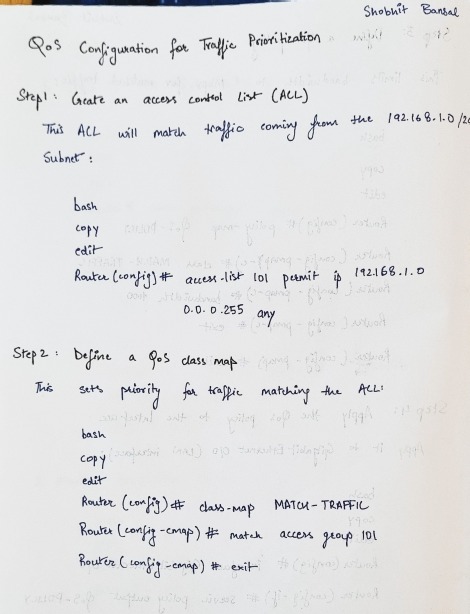 Shobhit Bansal
QoS Configuration for Traffic Prioritization
Step1: Create an access control List (ACL)
This ACL will match traffic coming from the 192.168.1.0/2
Subnet:
bash
copy
edit
Router (config)# access-list 101 permit ip 192.168.1.0
0.0.0.255 any
Step 2: Define a QoS class map
This sets priority for traffic matching the ACL:
bash
copy
edit
Router (config)# class-map MATCH-TRAFFIC
Router (config-cmap)# match access group 101
Router (config-cmap)# exit